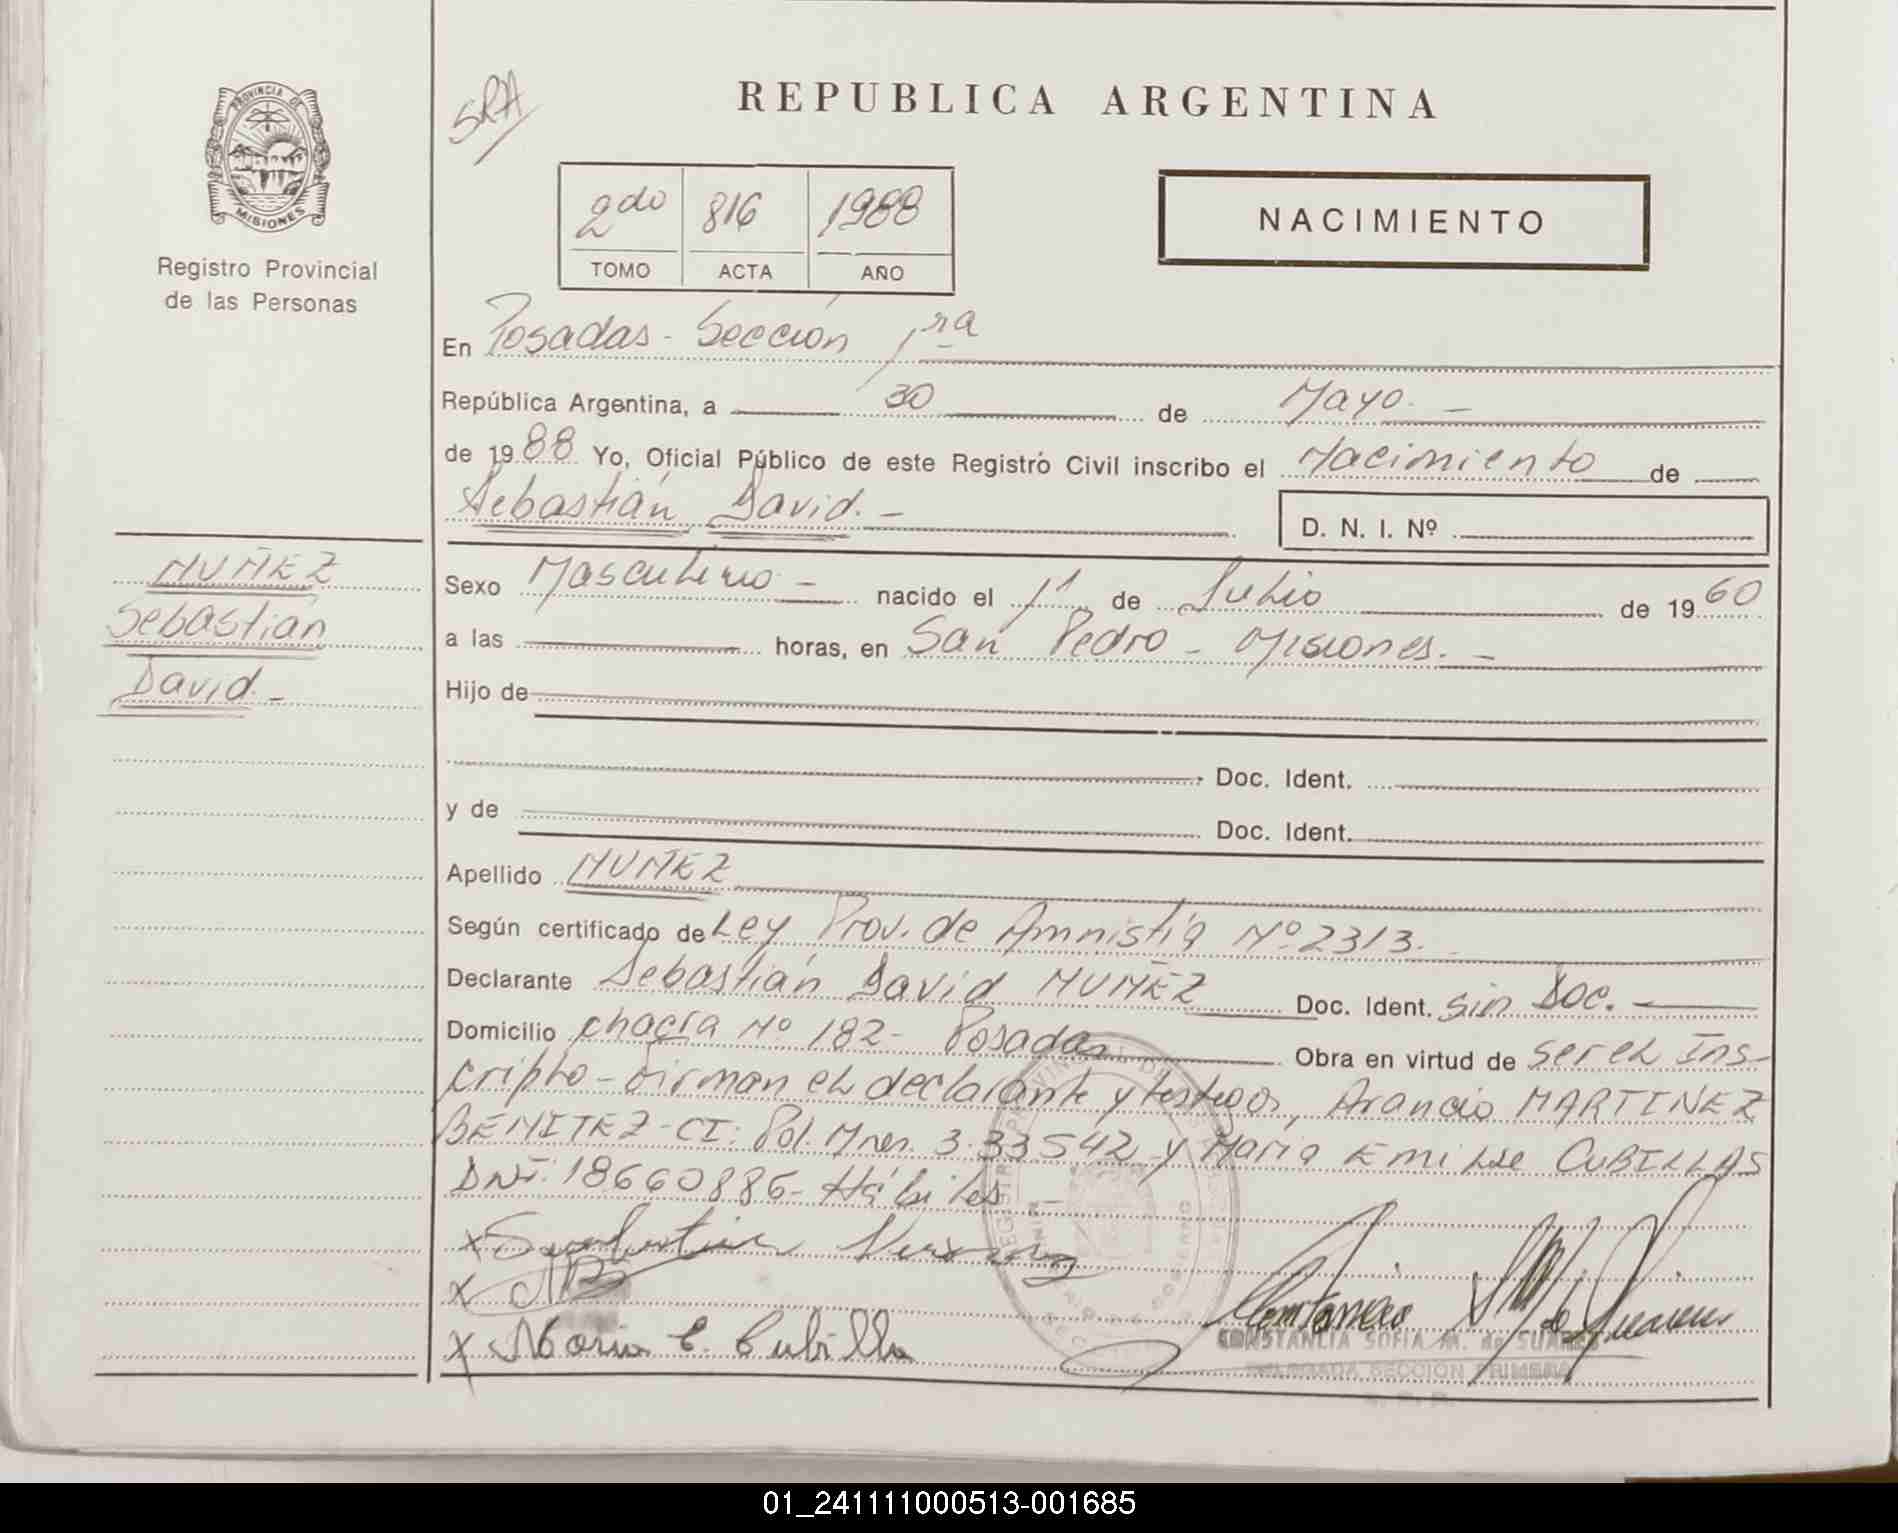 PROVINCIA DE
MISIONES
Registro Provincial
de las Personas
SRA
REPUBLICA ARGENTINA
2do 816 1988
TOMO ACTA AÑO
NACIMIENTO
En Posadas - Sección 1ra
República Argentina, a 30 de Mayo. -
de 1988 Yo, Oficial Público de este Registro Civil inscribo el Nacimiento de
Sebastián David. -
D. N. I. Nº
NUÑEZ
Sebastián
David. -
Sexo Masculino - nacido el 1º de Julio de 1960
a las horas, en San Pedro - Misiones. -
Hijo de
Doc. Ident.
y de
Doc. Ident.
Apellido NUÑEZ
Según certificado de Ley Prov. de Amnistía Nº 2313. -
Declarante Sebastián David NUÑEZ Doc. Ident. sin Doc. -
Domicilio chacra Nº 182 - Posadas Obra en virtud de ser el Ins-
cripto - Firman el declarante y testigos, Arancio MARTINEZ
BENITEZ - CI: Pol. Mnes. 3.33542 y María Emilse CUBILLAS
DNI: 18660886 - Hábiles -
x Sebastian
x
x Maria E. Cubilla
CONSTANCIA SOFIA M. de SUAREZ
DELEGADA SECCION PRIMERA
01_241111000513-001685